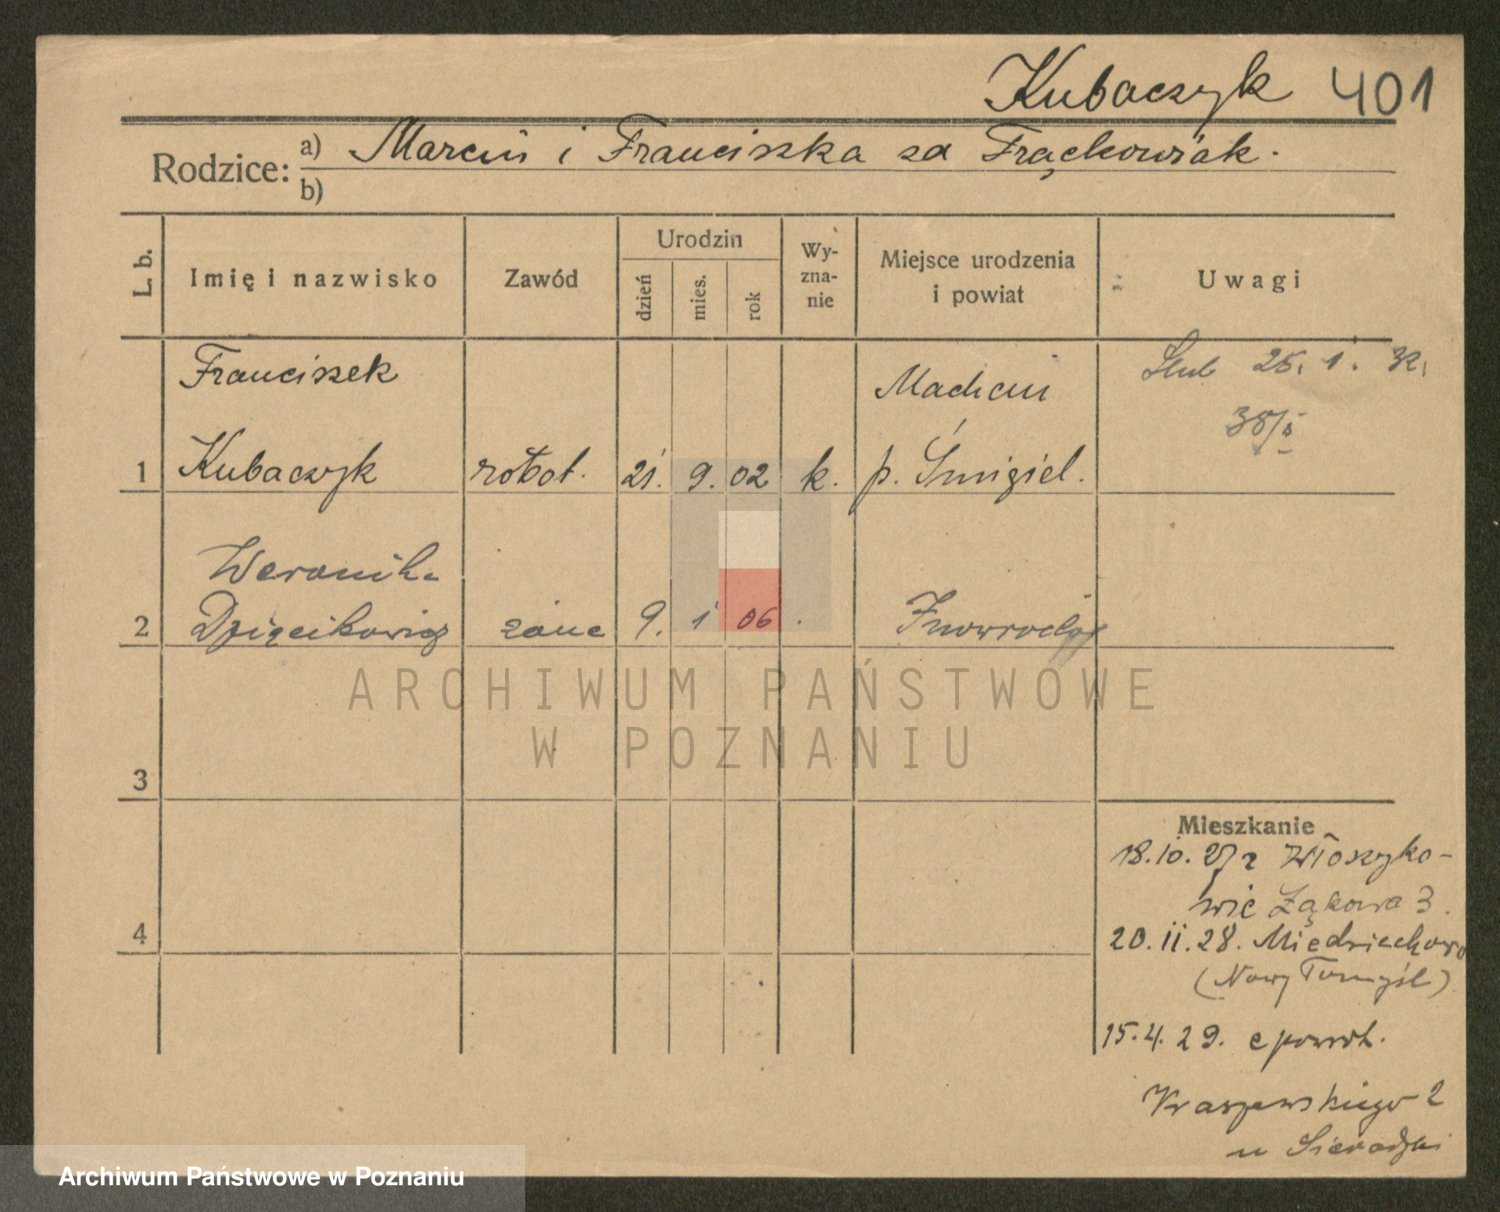 Kubaczyk 401
Rodzice: a) Marcin i Franciszka za Frąckowiak.
b)
L. b.
Imię i nazwisko
Zawód
Urodzin
dzień
mies.
rok
Wy-
zna-
nie
Miejsce urodzenia
i powiat
Uwagi
Franciszek
Machcin
Ślub 25. 1. 32.
38/I
1 Kubaczyk robot. 21. 9. 02 k. p. Śmigiel.
Weronika
2 Dzięcikowicz żona 9. 1 06 Inowrocław
ARCHIWUM PAŃSTWOWE
W POZNANIU
3
Mieszkanie
18.10.27 z Włoszyko-
wic Łąkowa 3.
4
20.11.28. Miedzichowo
(Nowy Tomyśl)
15.4.29. z powrót.
Kraszewskiego 2
u Sieradzki
Archiwum Państwowe w Poznaniu